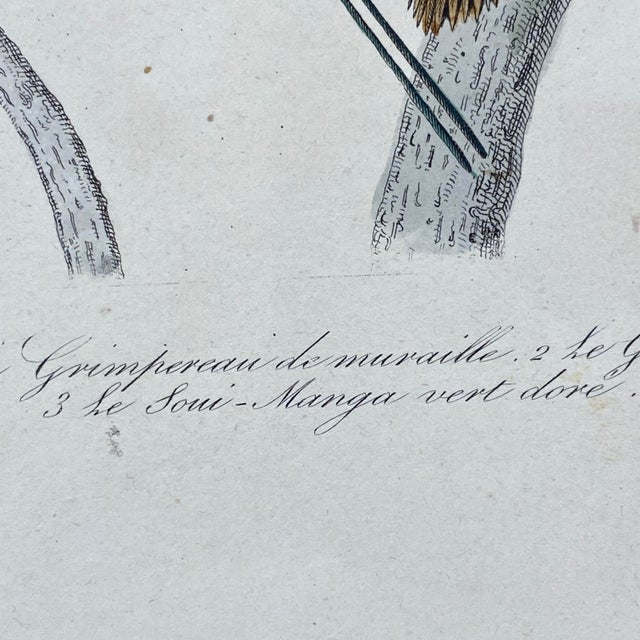 Grimpereau de muraille. 2 Le G
3 Le Soui-Manga vert doré.